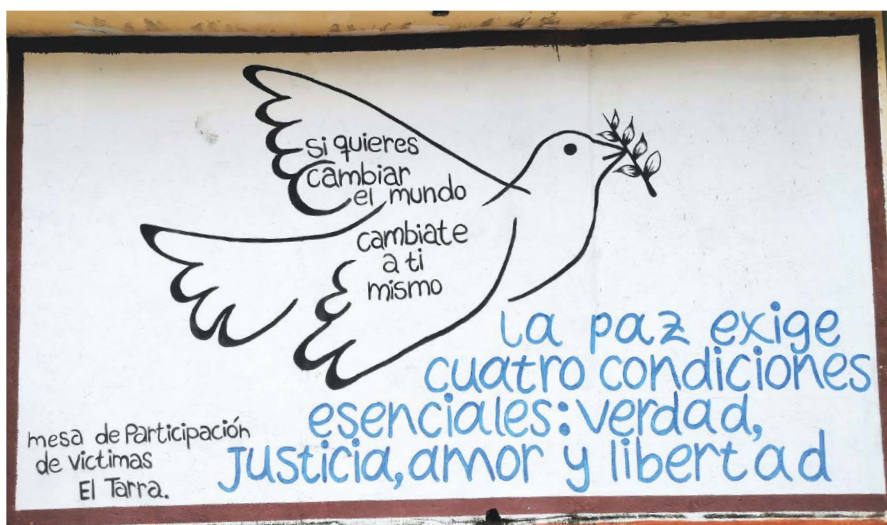 si quieres
cambiar
el mundo
cambiate
a ti
mismo
la paz exige
cuatro condiciones
esenciales: verdad,
Justicia, amor y libertad
mesa de Participación
de victimas
El Tarra.